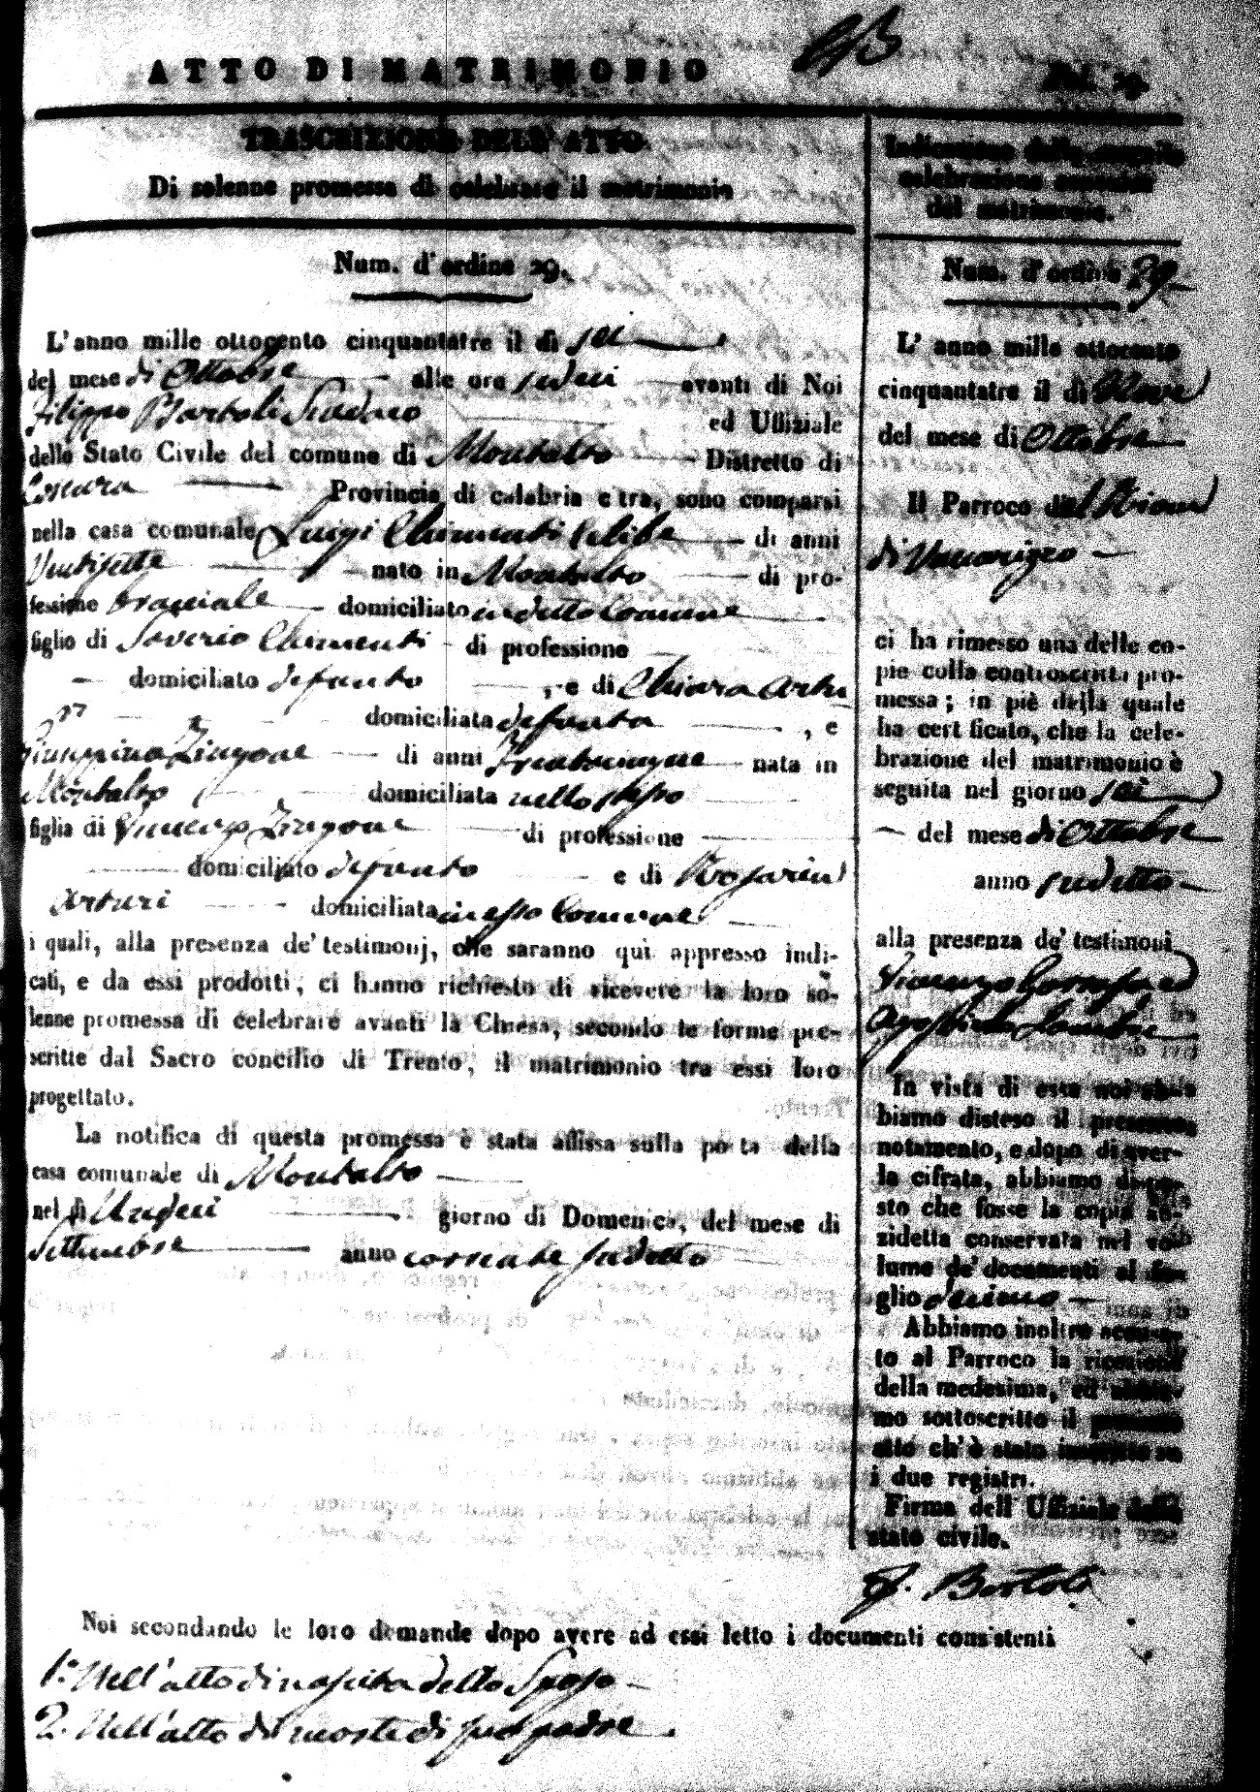 ATTO DI MATRIMONIO
TRASCRIZIONE DELL' ATTO
Di solenne promessa di celebrare il matrimonio
Num. d'ordine 29.
L'anno mille ottocento cinquantatre il dì sei
del mese di Ottobre alle ore sedeci avanti di Noi
Filippo Bartoli Sindaco ed Uffiziale
dello Stato Civile del comune di Montalto Distretto di
Cosenza Provincia di calabria citra, sono comparsi
nella casa comunale Luigi Chimenti Celibe di anni
Ventisette nato in Montalto di pro-
fessione bracciale domiciliato in detto Comune
figlio di Saverio Chimenti di professione
domiciliato defunto, e di Chiara Artu
ri domiciliata defunta, e
Giuseppina Zingone di anni nata in
Montalto domiciliata nello stesso
figlia di Zingone di professione
domiciliato defunto e di Rosarina
Arturi domiciliata in esso Comune
i quali, alla presenza de' testimonj, che saranno quì appresso indi-
cati, e da essi prodotti, ci hanno richiesto di ricevere la loro so-
lenne promessa di celebrare avanti la Chiesa, secondo le forme pre-
scritte dal Sacro concilio di Trento, il matrimonio tra essi loro
progettato.
La notifica di questa promessa è stata affissa sulla porta della
casa comunale di Montalto
nel dì Undeci giorno di Domenica, del mese di
Settembre anno corrente sudetto
Indicazione della seguita
celebrazione canonica
del matrimonio.
Num. d'ordine 29
L' anno mille ottocento
cinquantatre il dì Nove
del mese di Ottobre
Il Parroco del
di Vaccarizzo
ci ha rimesso una delle co-
pie colla controscritta pro-
messa; in piè della quale
ha certificato, che la cele-
brazione del matrimonio è
seguita nel giorno sei
del mese di Ottobre
anno sudetto
alla presenza de' testimoni
Vicenzo ed
Agostino
In vista di essa noi ab-
biamo disteso il presente
notamento, e dopo di aver-
la cifrata, abbiamo dispo-
sto che fosse la copia an-
zidetta conservata nel vo-
lume de' documenti al fo-
glio decimo
Abbiamo inoltre accusa-
to al Parroco la ricezione
della medesima, ed abbia-
mo sottoscritto il presente
atto ch'è stato inscritto su
i due registri.
Firma dell Uffiziale dello
stato civile.
F. Bartoli
Noi secondando le loro demande dopo avere ad essi letto i documenti consistenti
1.º Nell'atto di nascita dello Sposo
2. Nell'atto di morte di suo padre.